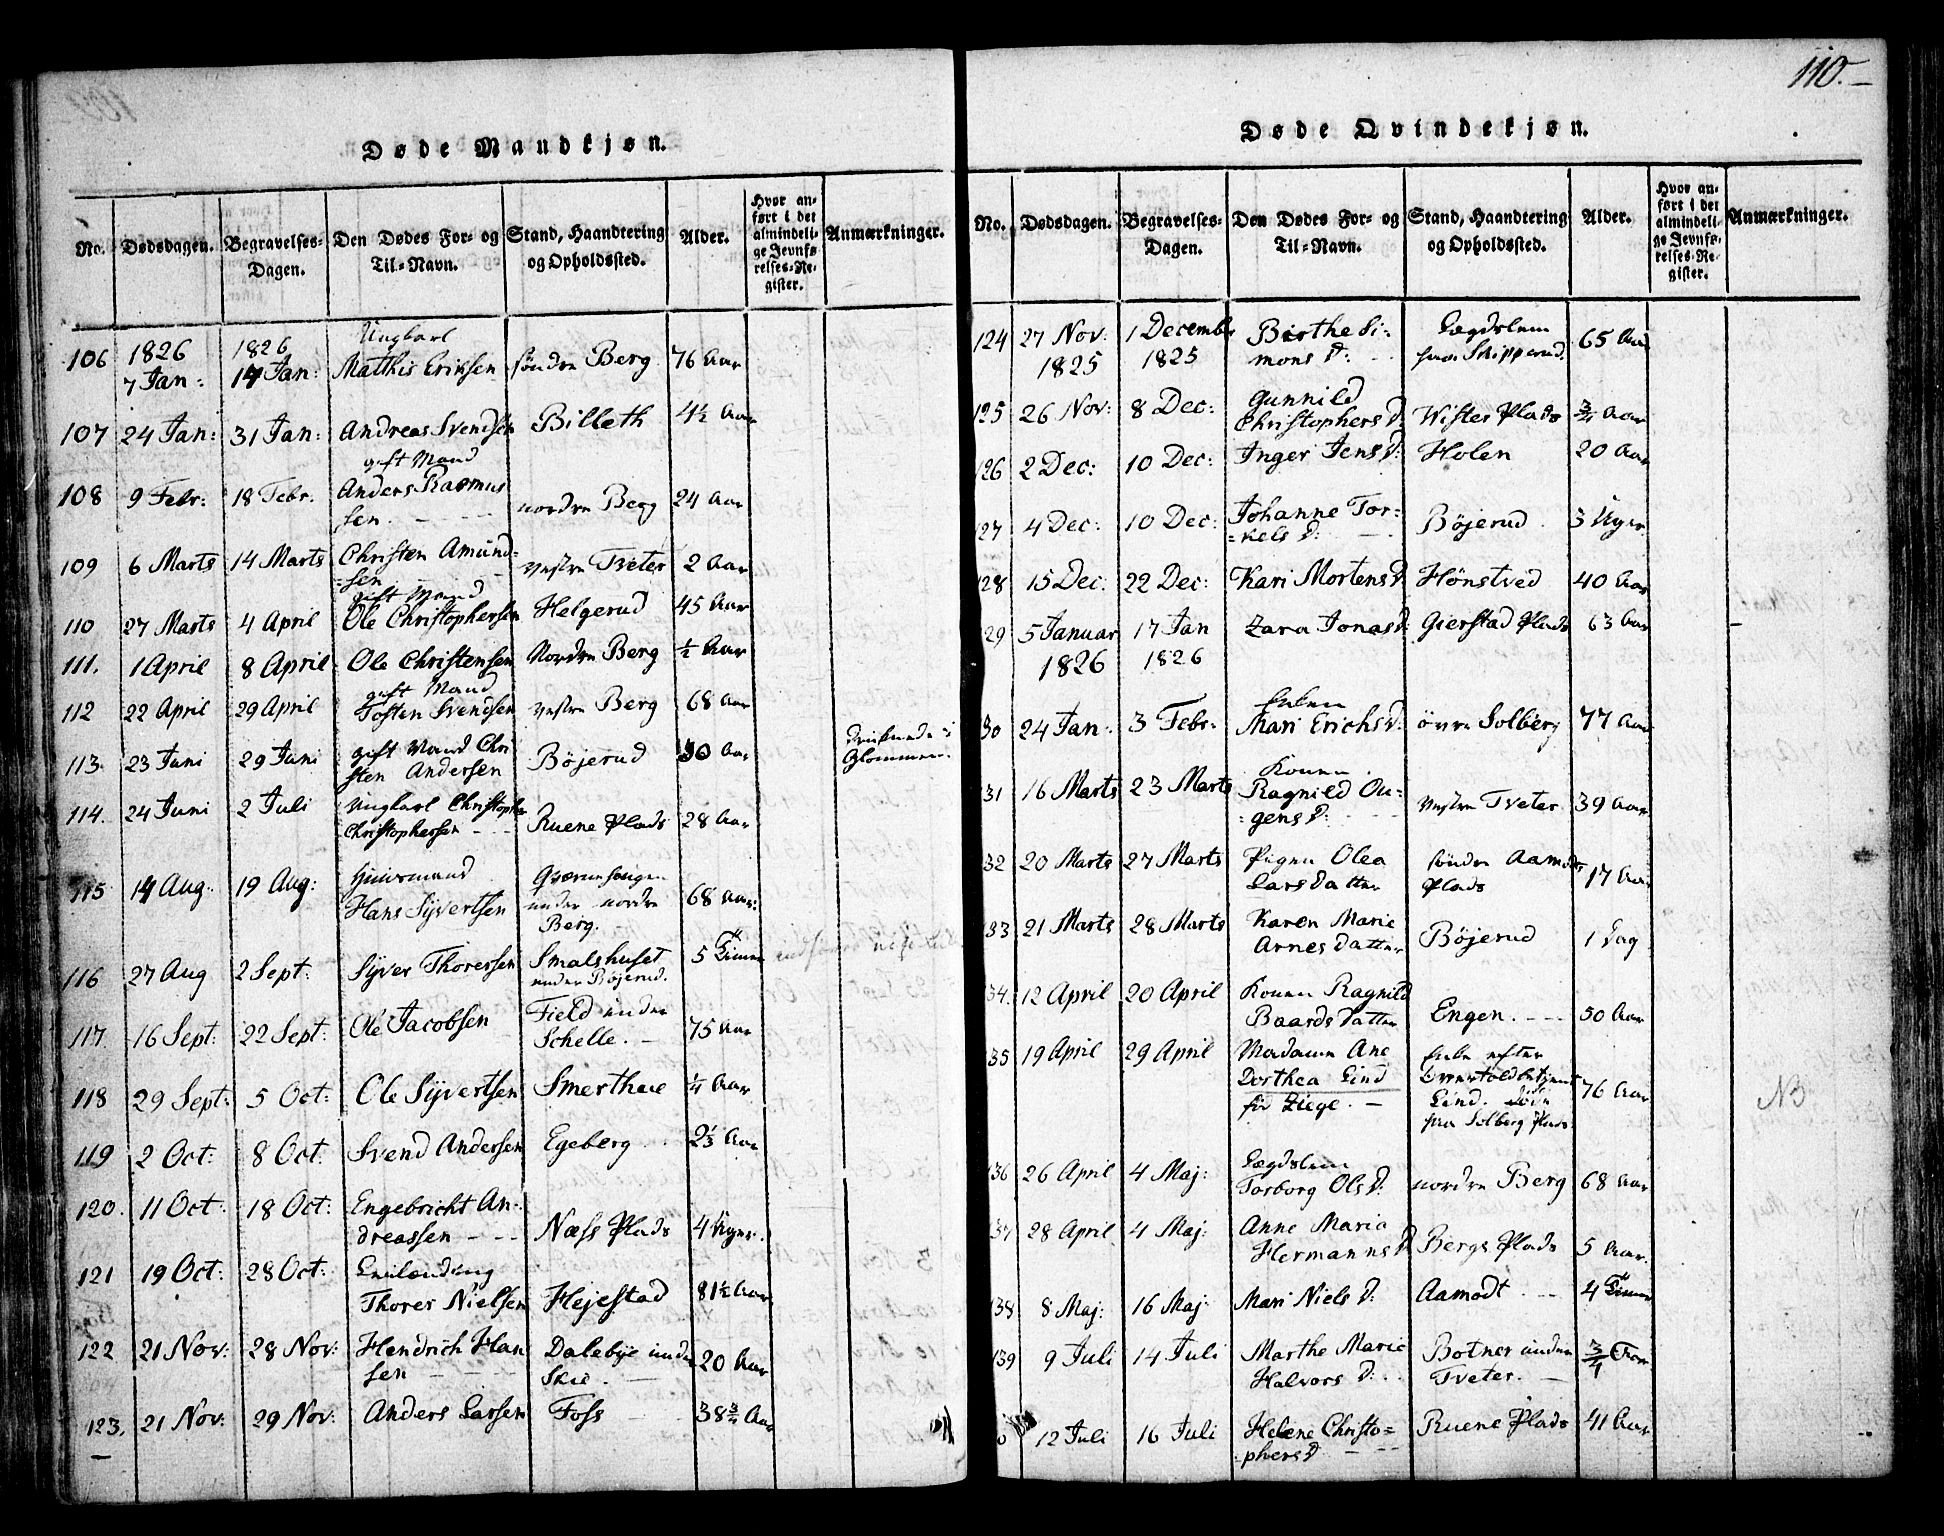 110.
Døde Mandkjøn.
No. Dødsdagen. Begravelses-Dagen. Den Dødes For- og Til-Navn. Stand, Haandtering og Opholdssted. Alder. Hvor anført i det almindelige Jevnførelses-Register. Anmærkninger.
106 1826 7 Jan: 1826 14 Jan: Ungkarl Mathis Eriksen søndre Berg 76 Aar
107 24 Jan: 31 Jan: Andreas Svendsen Billeth 4½ Aar
108 9 Febr: 18 Febr: gift Mand Anders Rasmussen nordre Berg 24 Aar
109 6 Marts 14 Marts Christen Amund=sen vestre Tveter 2 Aar
110 27 Marts 4 April gift Mand Ole Christophersen Helgerud 45 Aar
111. 1 April 8 April Ole Christensen Nordre Berg ½ Aar
112 22 April 29 April gift Mand Tosten Svendsen vestre Berg 68 Aar
113. 23 Juni 29 Juni gift Mand Christen Andersen Bøjerud 30 Aar druknede i Glommen.
114. 24 Juni 2 Juli Ungkarl Christopher Christophersen Ruene Plads 28 Aar
115 14 Aug. 19 Aug: Huusmand Hans Syvertsen under nordre Berg. 68 Aar.
116 27 Aug 2 Sept: Syver Thoresen Smalshuset under Bøjerud. 5 Timer
117 16 Sept: 22 Sept: Ole Jacobsen Field under Schelle. 75 Aar
118 29 Sept: 5 Oct: Ole Syvertsen Smerthue ¼ Aar
119 2 Oct: 8 Oct: Svend Andersen Egeberg 2⅓ Aar
120. 11 Oct: 18 Oct: Engebricht Andreassen Næss Plads 4 Uger.
121 19 Oct: 28 Oct: Thorer Nielsen Hejestad 81½ Aar
122 21 Nov: 28 Nov: Hendrich Hansen Dalebye under Skie. 20 Aar
123. 21 Nov: 29 Nov: Anders Larsen Foss 38¾ Aar
Døde Qvindekjøn.
No. Dødsdagen. Begravelses-Dagen. Den Dødes For- og Til-Navn. Stand, Haandtering og Opholdssted. Alder. Hvor anført i det almindelige Jevnførelses-Register. Anmærkninger.
124 27 Nov: 1825 1 December 1825 Birthe Simons D: Lægdslem fra Skipperud. 65 Aar
125 26 Nov: 8 Dec: Gunnild Christophers D. Wister Plads ¾ Aar
126 2 Dec: 10 Dec: Inger Jens D: Holen 20 Aar
127 4 Dec: 10 Dec: Johanne Tor=kels D: Bøjerud. 3 Uger
128 15 Dec. 22 Dec: Kari Mortens D. Hønstved 40 Aar
29 5 Januar 1826 17 Jan 1826 Zara Jonas D: Gierstad Plads 63 Aar
30 24 Jan: 3 Febr: Enken Mari Erichs D: øvre Solberg 77 Aar
31 16 Marts 23 Marts Konen Ragnild Ou=gens D: vestre Tveter 39 Aar
32 20 Marts 27 Marts Pigen Olea Larsdatter søndre Aamodts Plads 17 Aar
33 21 Marts 28 Marts Karen Marie Arnesdatter Bøjerud 1 Dag
34. 12 April 20 April Konen Ragnild Baardsdatter Engen. 50 Aar
35 19 April 29 April Madame Ane Dorthea Lind fød Ziege. Enke efter Overtoldbetjent Lind. fra Solberg Plads. 76 Aar NB
136 26 April 4 Maj: Lægdslem Torborg Ols D: nordre Berg 68 Aar
137 28 April 4 Maj: Anne Maria Hermanns D Bergs Plads 5 Aar.
138 8 Maj: 16 Maj: Mari Niels D: Aamodt 4 Timer
139 9 Juli 14 Juli Marthe Marie Halvors D: Botner under Tveter. ¾ Aar
0 12 Juli 16 Juli Helene Christo=phers D Ruene Plads 41 Aar